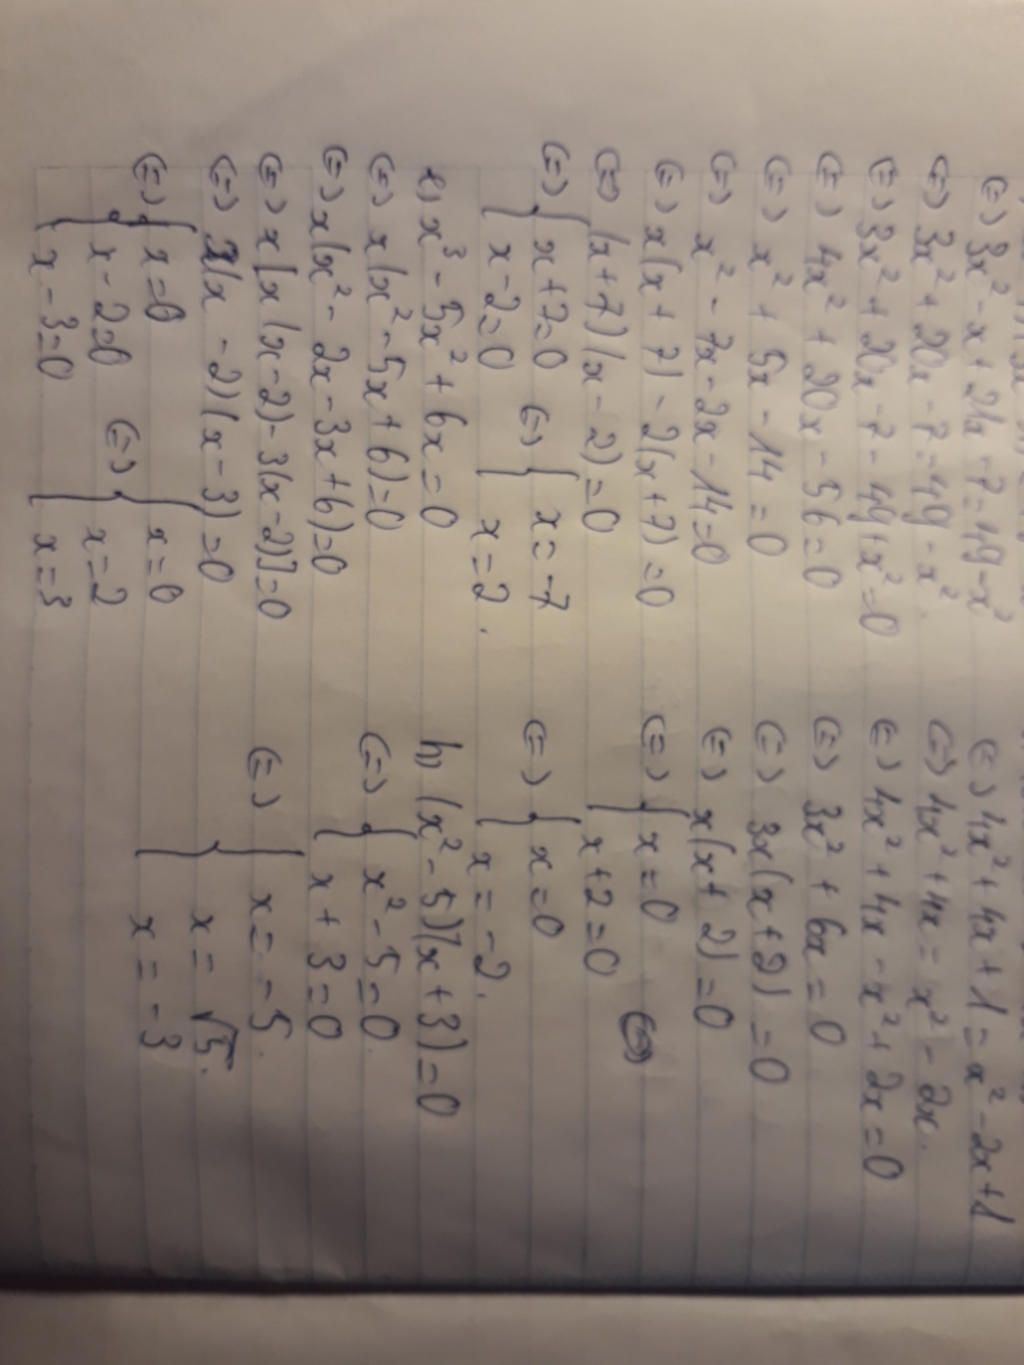 (=) 3x² - x + 21x - 7 = 49 - x²
(=) 3x² + 20x - 7 = 49 - x².
(=) 3x² + 20x - 7 - 49 + x² = 0
(=) 4x² + 20x - 56 = 0
(=) x² + 5x - 14 = 0
(=) x² - 7x - 2x - 14 = 0
(=) x(x + 7) - 2(x + 7) = 0
(=) (x + 7)(x - 2) = 0
(=) { x + 7 = 0 (=) { x = -7
x - 2 = 0 x = 2.
e) x³ - 5x² + 6x = 0
(=) x(x² - 5x + 6) = 0
(=) x(x² - 2x - 3x + 6) = 0
(=) x[x(x - 2) - 3(x - 2)] = 0
(=) x(x - 2)(x - 3) = 0
(=) { x = 0 x = 0
x - 2 = 0 (=) { x = 2
x - 3 = 0 x = 3
(=) 4x² + 4x + 1 = x² - 2x + 1
(=) 4x² + 4x = x² - 2x.
(=) 4x² + 4x - x² + 2x = 0
(=) 3x² + 6x = 0
(=) 3x(x + 2) = 0
(=) x(x + 2) = 0
(=) { x = 0
x + 2 = 0
(=) { x = 0
x = -2.
h) (x² - 5)(x + 3) = 0
(=) { x² - 5 = 0
x + 3 = 0
(=) { x = -5.
x = √5.
x = -3